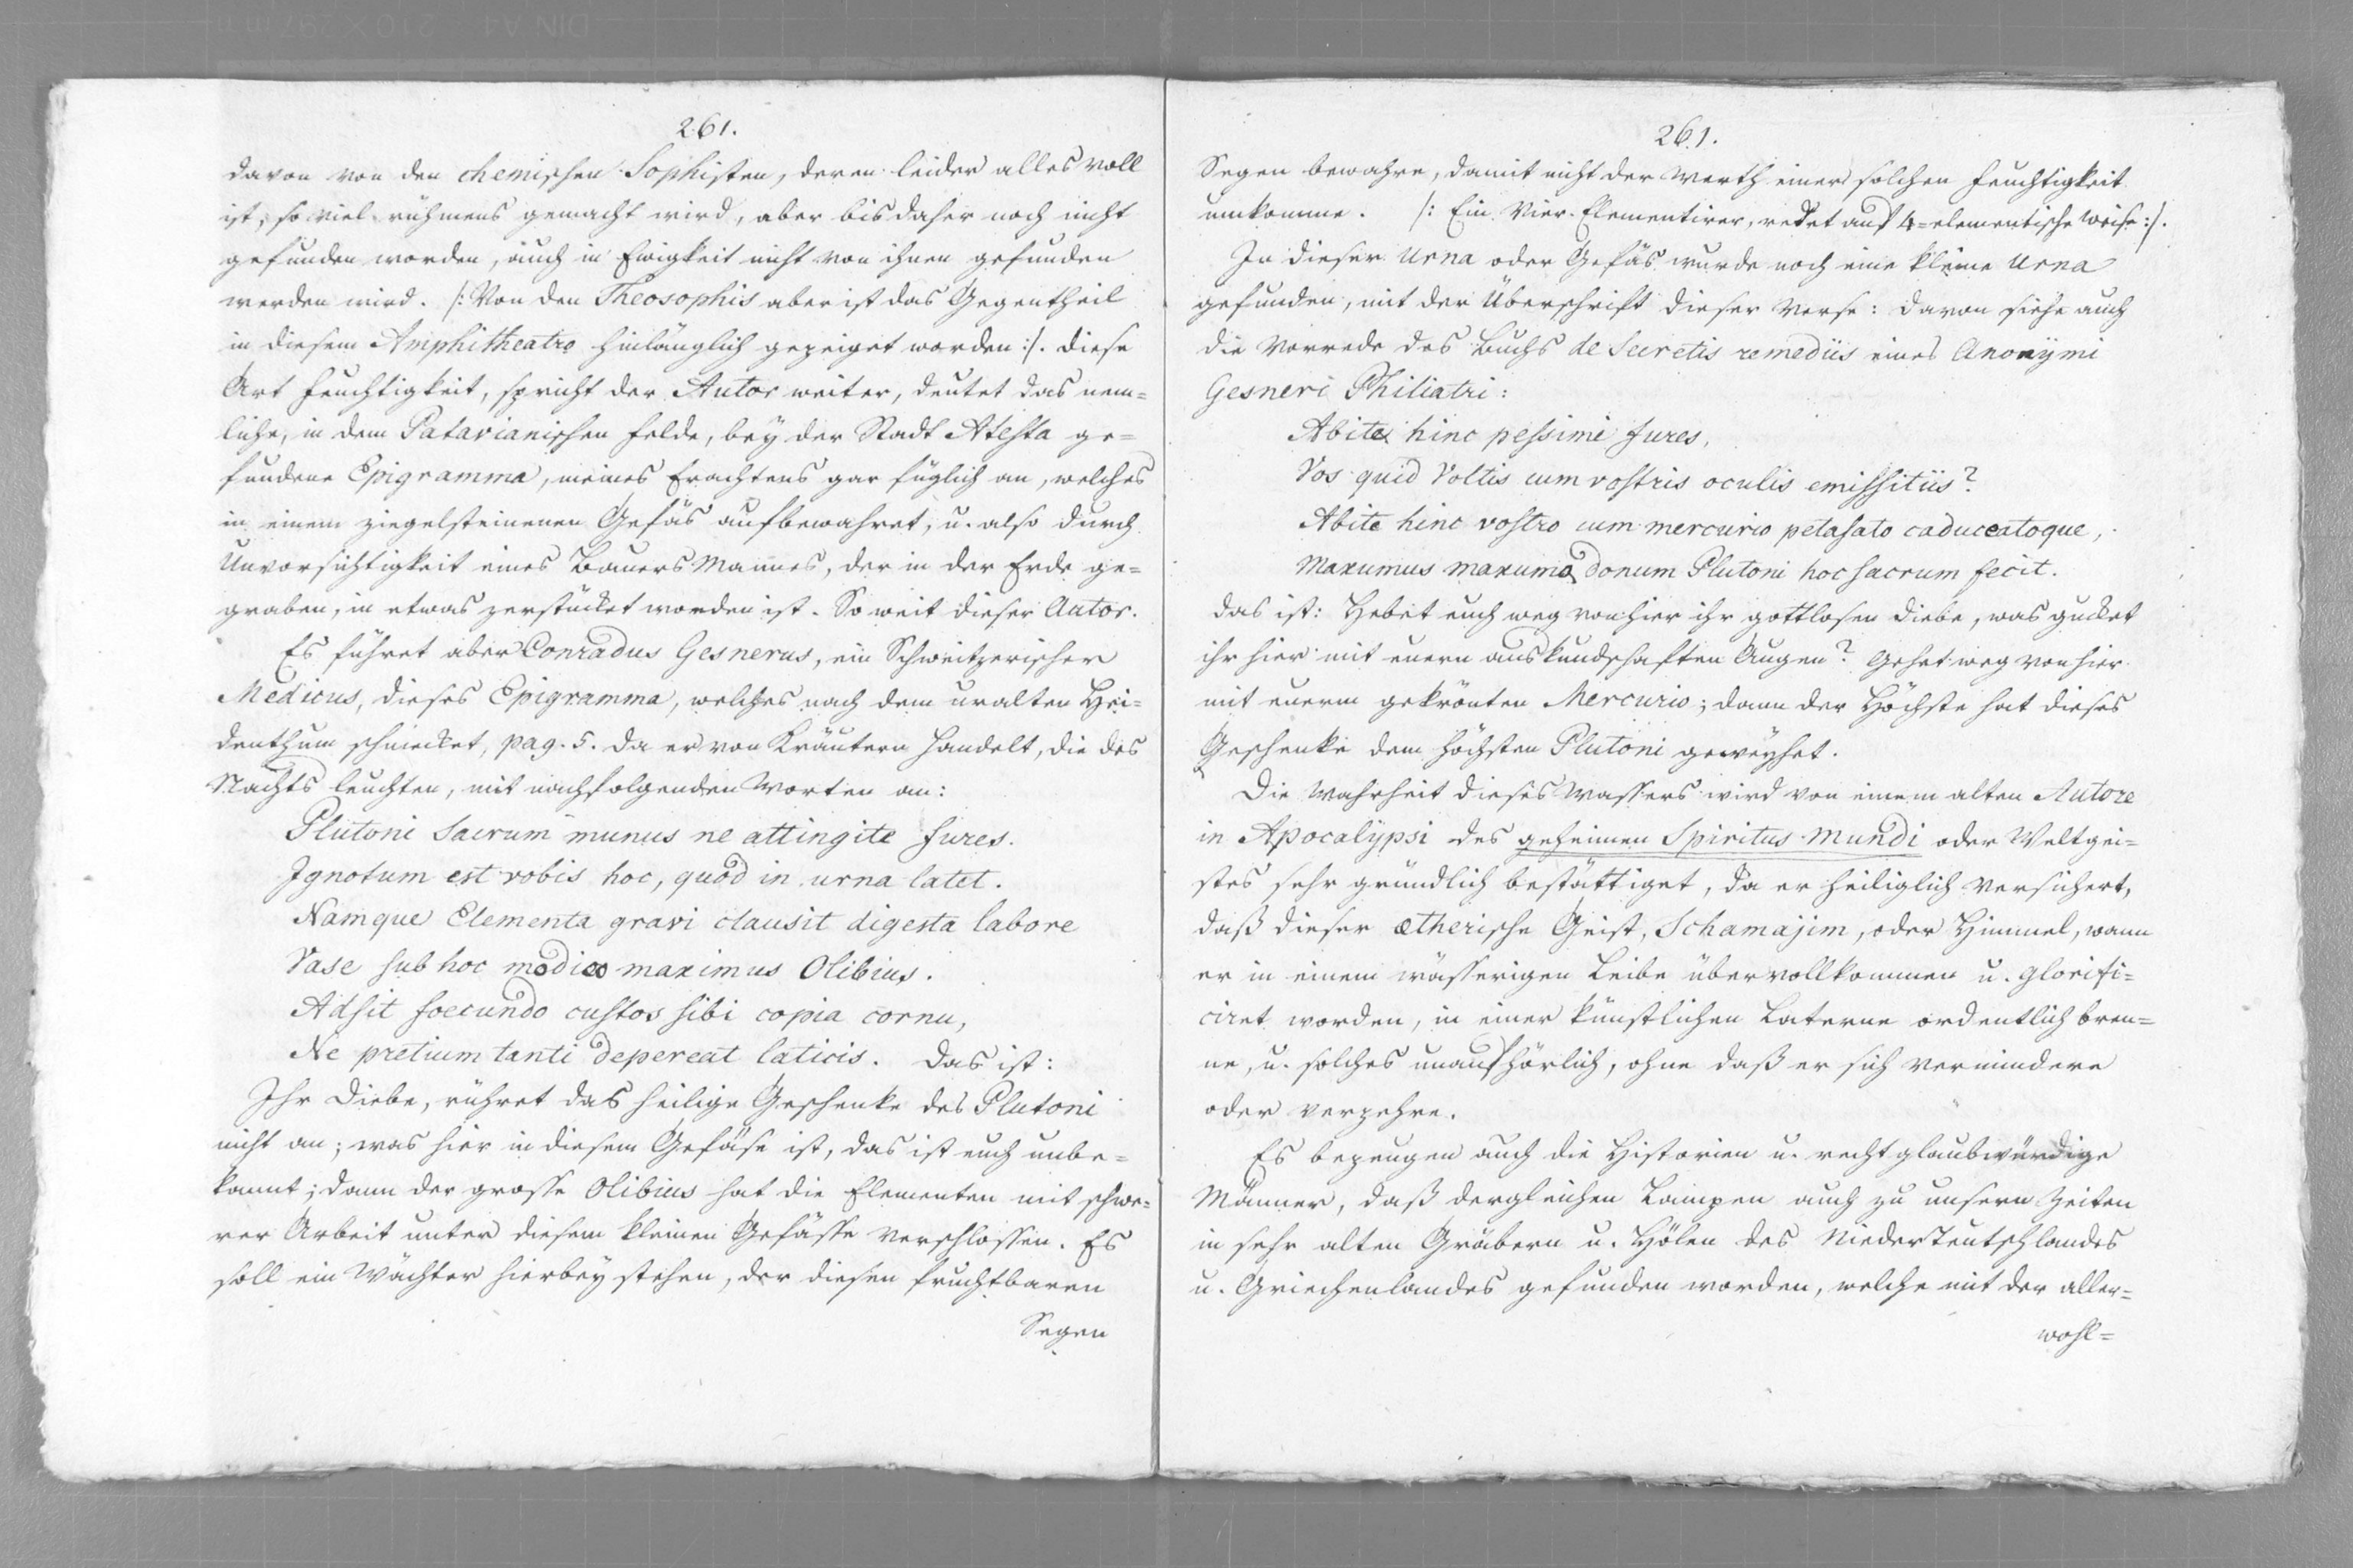 261.
davon von den chemischen Sophisten, deren leider alles voll
ist, so viel rühmens gemacht wird, aber bis daher noch nicht
gefunden worden, auch in Ewigkeit nicht von ihnen gefunden
werden wird. /: Von den Theosophis aber ist das Gegentheil
in diesem Amphitheatro hinlänglich gezeiget worden :/. diese
Art Feuchtigkeit, spricht der Autor weiter, deutet das nem=
liche, in dem Patavianischen Felde, bey der Stadt Atesta ge=
fundene Epigramma, meines Erachtens gar füglich an, welches
in einem ziegelsteinenen Gefäs aufbewahret, u. also durch
Unvorsichtigkeit eines Bauers Mannes, der in der Erde ge=
graben, in etwas zerstücket worden ist. So weit dieser Autor.
Es führet aber Conradus Gesnerus, ein Schweitzerischer
Medicus, dieses Epigramma, welches nach dem uralten Hei=
denthum schmecket, pag. 5. da er von Kräutern handelt, die des
Nachts leuchten, mit nachfolgenden Worten an:
Plutoni Sacrum munus ne attingite fures.
Ignotum est vobis hoc, quod in urna latet.
Namque Elementa gravi clausit digesta labore
Vase sub hoc modico maximus Olibius.
Adsit foecundo custos sibi copia cornu,
Ne pretium tanti depereat laticis. das ist:
Ihr Diebe, rühret das heilige Geschenke des Plutoni
nicht an; was hier in diesem Gefäse ist, das ist euch unbe=
kannt; dann der grosse Olibius hat die Elementen mit schwe=
rer Arbeit unter diesem kleinen Gefässe verschlossen. Es
soll ein Wächter hierbey stehen, der diesen fruchtbaren
Segen
261.
Segen bewahre, damit nicht der Werth einer solchen Feuchtigkeit
umkomme. /: Ein Vier-Elementirer, redet auf 4=elementische Weise :/.
In dieser Urna oder Gefäs wurde noch eine kleine Urna
gefunden, mit der Überschrift dieser Verse: davon siehe auch
die Vorrede des Buchs de Secretis remediis eines Anonymi
Gesneri Philiatri:
Abite hinc pessimi fures,
Vos quid Voltis cum vostris oculis emissitiis?
Abite hinc vostro cum mercurio petasato caduceatoque,
Maxumus maxumo donum Plutoni hoc sacrum fecit.
das ist: Hebet euch weg von hier ihr gottlosen Diebe, was gucket
ihr hier mit euern auskundschaften Augen? Gehet weg von hier
mit euerm gekrönten Mercurio; dann der Höchste hat dieses
Geschenke dem höchsten Plutoni geweyhet.
Die Wahrheit dieses Wassers wird von einem alten Autore
in Apocalypsi des geheimen Spiritus Mundi oder Weltgei=
stes sehr gründlich bestättiget, da er heiliglich versichert,
daß dieser ætherische Geist, Schamajim, oder Himmel, wann
er in einem wässerigen Leibe übervollkommen u. glorifi=
ciret worden, in einer künstlichen Laterne ordentlich bren=
ne, u. solches unaufhörlich, ohne daß er sich vermindere
oder verzehre.
Es bezeugen auch die Historien u. recht glaubwürdige
Männer, daß dergleichen Lampen auch zu unsern Zeiten
in sehr alten Gräbern u. Hölen des Niederteutschlandes
u. Griechenlandes gefunden worden, welche mit der aller=
wohl=